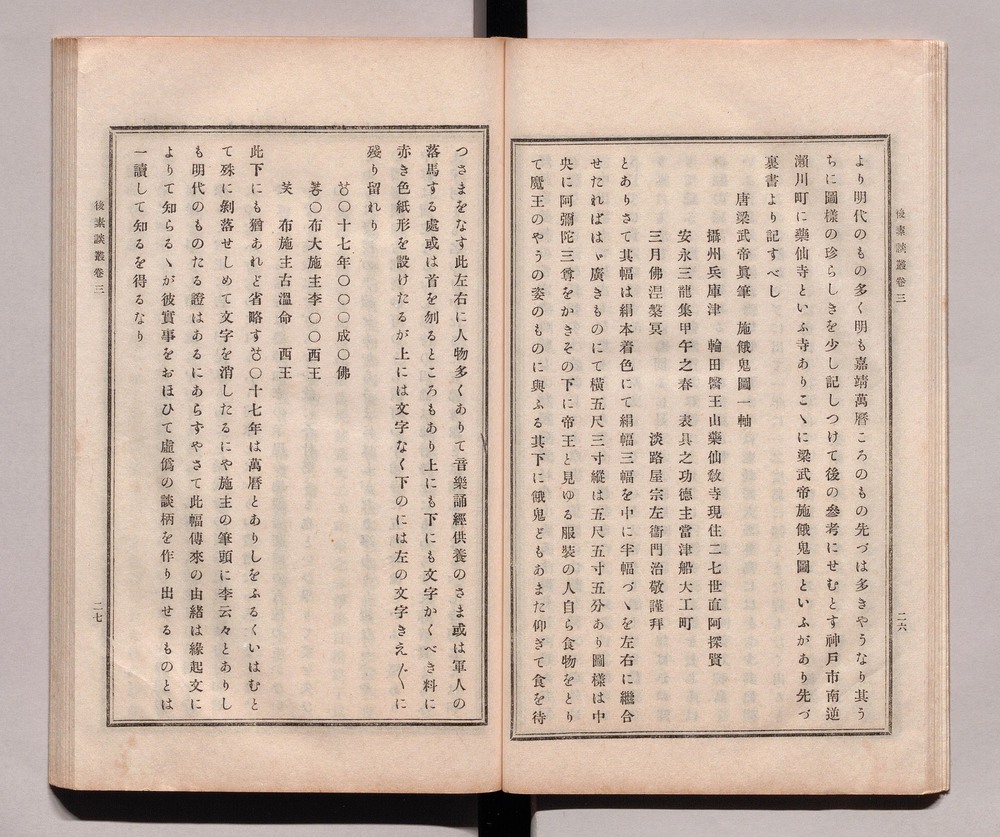 後素談叢卷三
二六
より明代のもの多く明も嘉靖萬曆ころのもの先づは多きやうなり其う
ちに圖樣の珍らしきを少し記しつけて後の參考にせむとす神戸市南逆
瀨川町に藥仙寺といふ寺ありこゝに梁武帝施餓鬼圖といふがあり先づ
裏書より記すべし
唐梁武帝眞筆　施餓鬼圖一軸
攝州兵庫津　輪田醫王山藥仙敎寺現住二七世直阿探賢
安永三龍集甲午之春　表具之功德主當津船大工町
三月佛涅槃㝠　淡路屋宗左衞門治敬謹拜
とありさて其幅は絹本着色にて絹幅三幅を中に半幅づゝを左右に繼合
せたればはゞ廣きものにて橫五尺三寸縱は五尺五寸五分あり圖樣は中
央に阿彌陀三尊をかきその下に帝王と見ゆる服裝の人自ら食物をとり
て魔王のやうの姿のものに與ふる其下に餓鬼どもあまた仰ぎて食を待
つさまをなす此左右に人物多くありて音樂誦經供養のさま或は軍人の
落馬する處或は首を刎るところもあり上にも下にも文字かくべき料に
赤き色紙形を設けたるが上には文字なく下のには左の文字きえ〳〵に
殘り留れり
〇十七年〇〇〇成〇佛
〇布大施主李〇〇西王
布施主古溫命　西王
此下にも猶あれど省略す〇十七年は萬曆とありしをふるくいはむと
て殊に剝落せしめて文字を消したるにや施主の筆頭に李云々とありし
も明代のものたる證はあるにあらすやさて此幅傳來の由緖は緣起文に
よりて知らるゝが彼實事をおほひて虛僞の談柄を作り出せるものとは
一讀して知るを得るなり
後素談叢卷三
二七